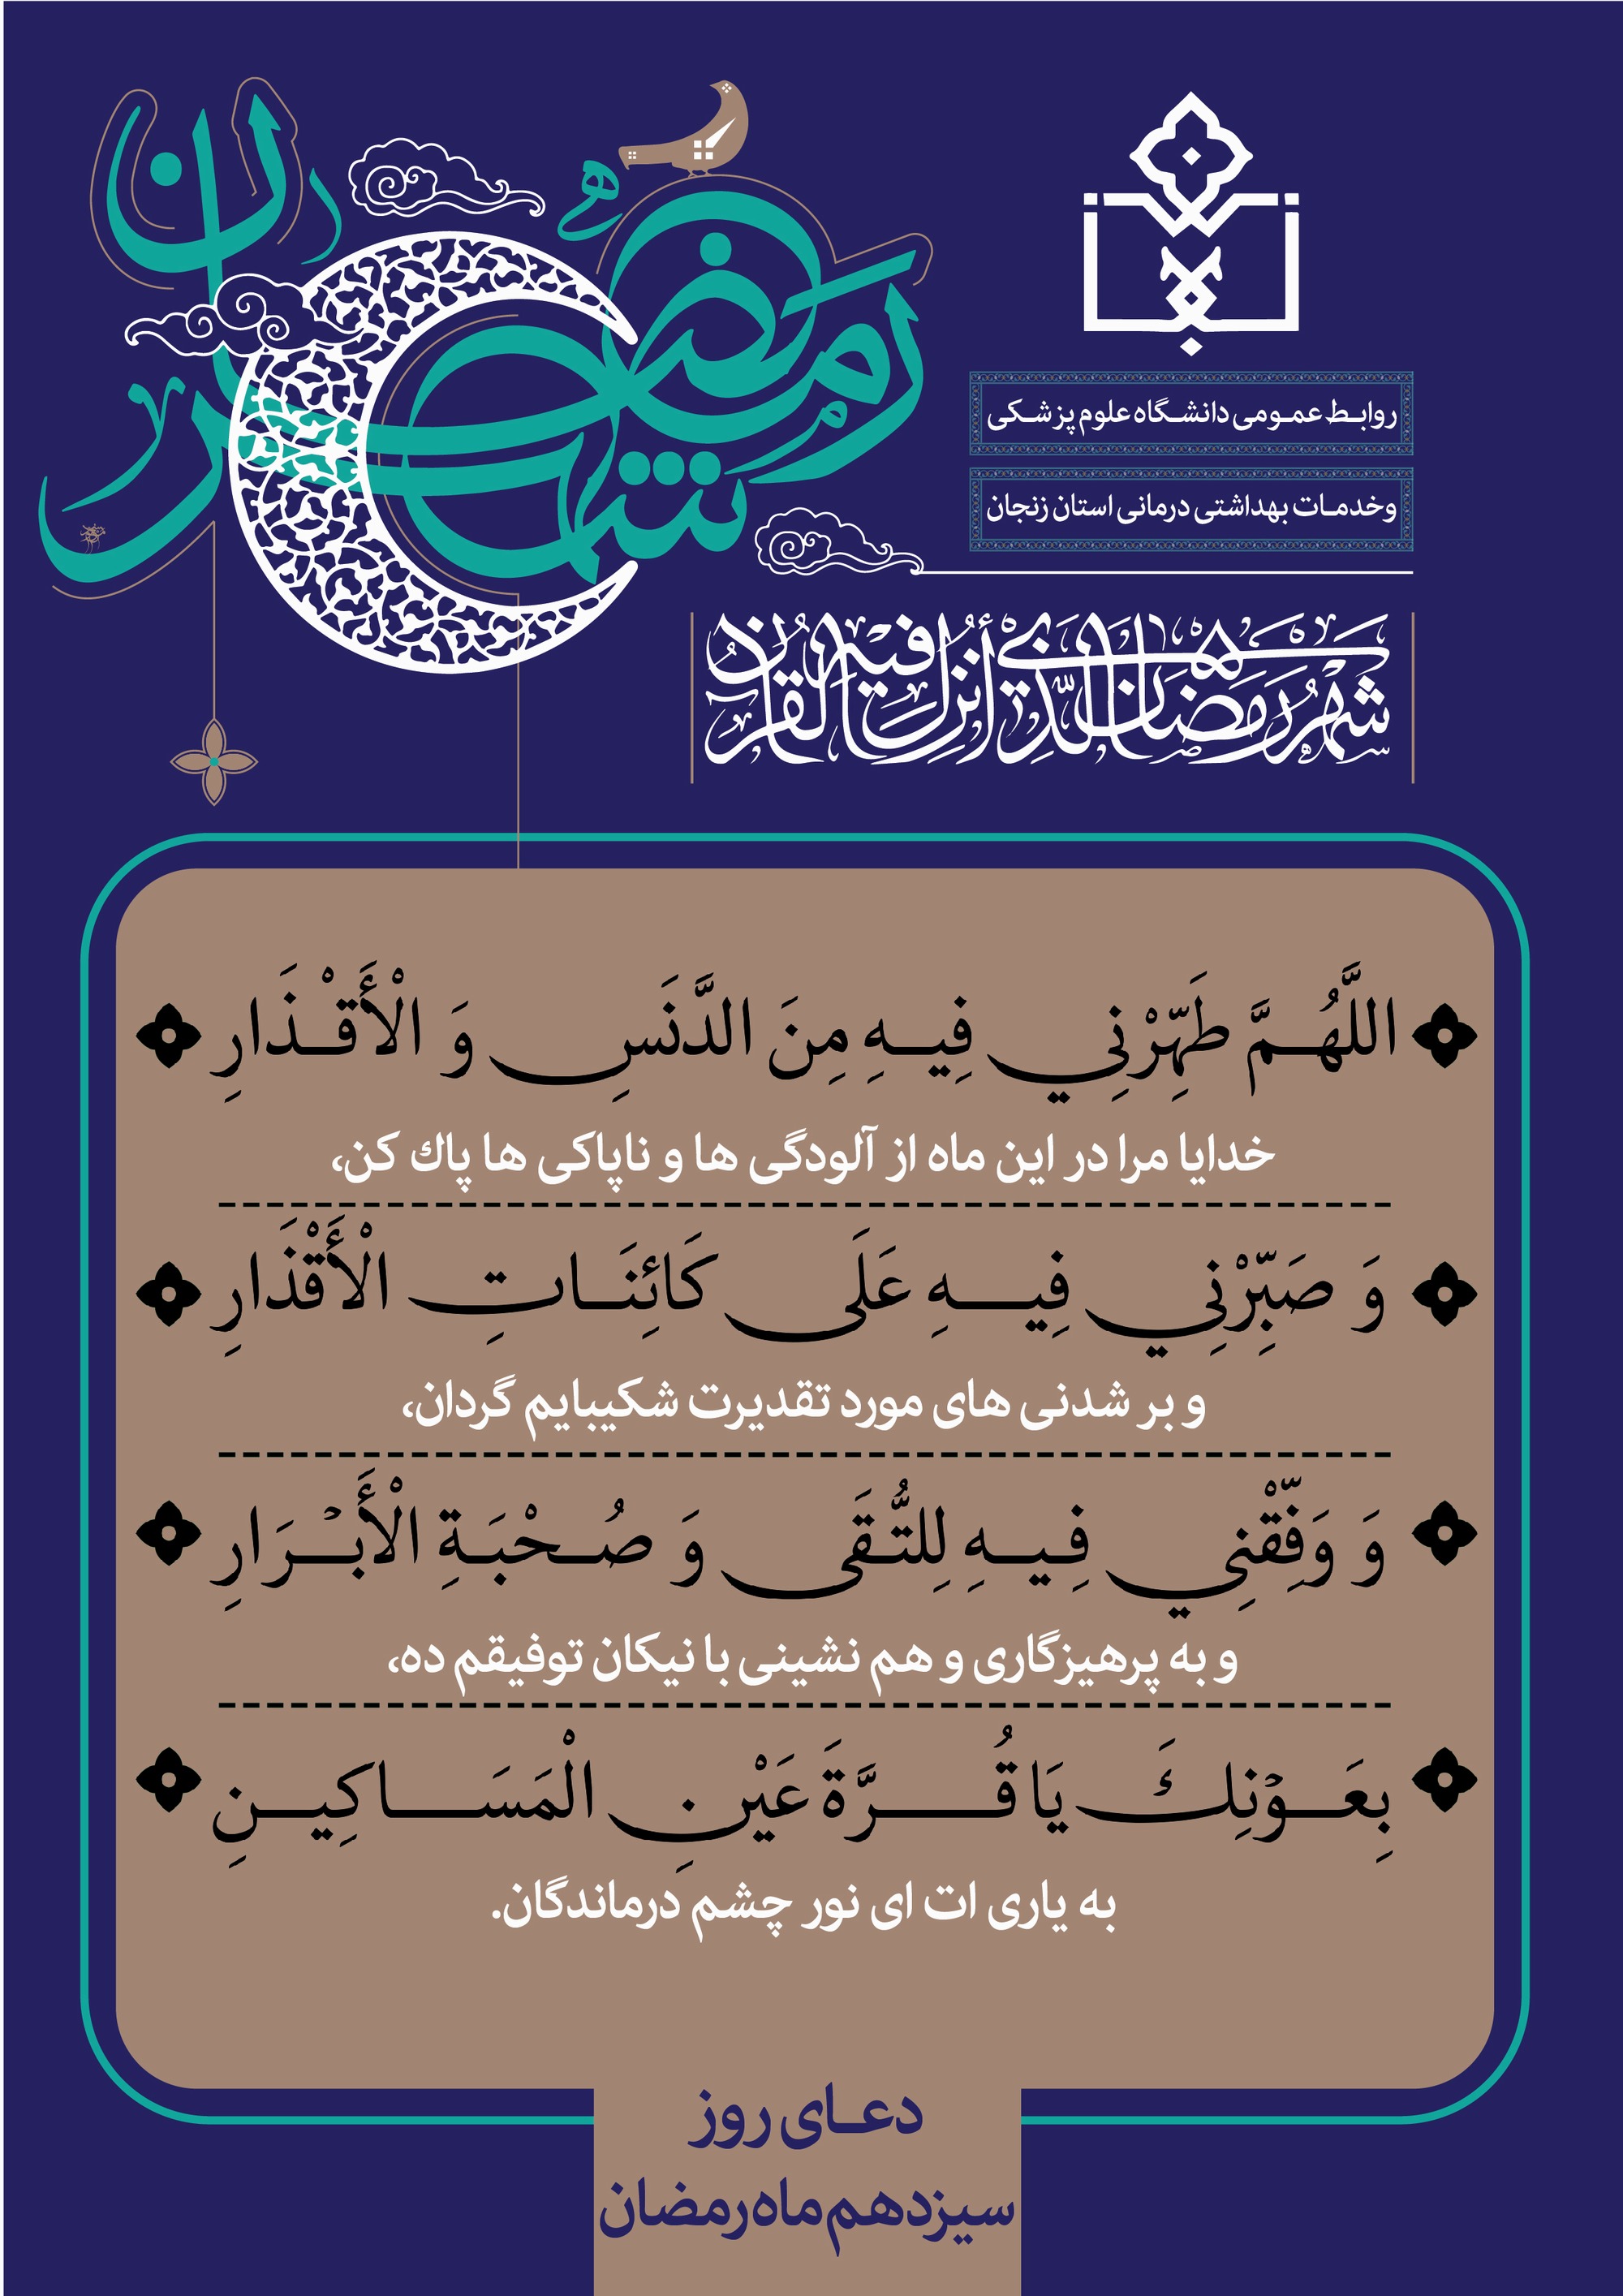 روابط عمومی دانشگاه علوم پزشکی
وخدمات بهداشتی درمانی استان زنجان
شهر رمضان الذی أنزل فیه القرآن
اللَّهُمَّ طَهِّرْنِي فِيهِ مِنَ الدَّنَسِ وَ الْأَقْذَارِ
خدایا مرا در این ماه از آلودگی ها و ناپاکی ها پاك کن،
وَ صَبِّرْنِي فِيهِ عَلَى كَائِنَاتِ الْأَقْذَارِ
و بر شدنی های مورد تقدیرت شکیبایم گردان،
وَ وَفِّقْنِي فِيهِ لِلتُّقَى وَ صُحْبَةِ الْأَبْرَارِ
و به پرهیزگاری و هم نشینی با نیکان توفیقم ده،
بِعَوْنِكَ يَا قُرَّةَ عَيْنِ الْمَسَاكِينِ
به یاری ات ای نور چشم درماندگان.
دعای روز
سیزدهم ماه رمضان